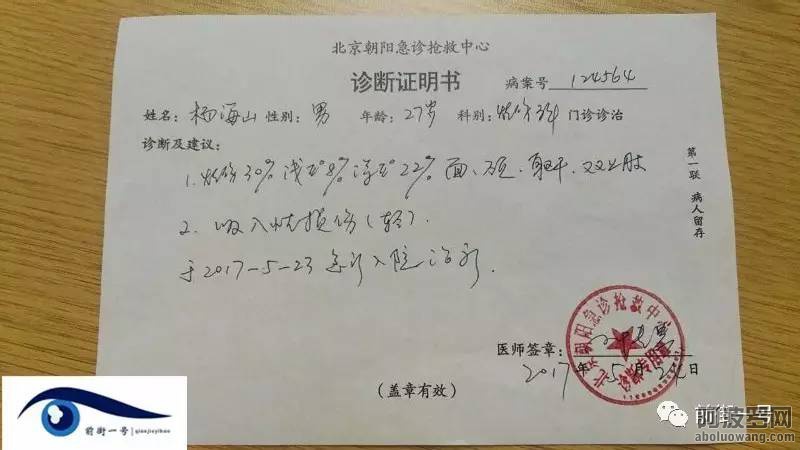 北京朝阳急诊抢救中心
诊断证明书 病案号 124564
姓名: 杨海山 性别: 男 年龄: 27岁 科别: 烧伤科 门诊诊治
诊断及建议:
1. 烧伤30% 浅Ⅱ°8% 深Ⅱ°22% 面、颈、躯干、双上肢
2. 吸入性损伤(轻).
于2017-5-23急诊入院治疗.
第一联 病人留存
医师签章:
2017年5月24日
(盖章有效)
北京朝阳急诊抢救中心
诊断专用章
前街一号|qianjieyihao
前街一号
阿波罗网
aboluowang.com